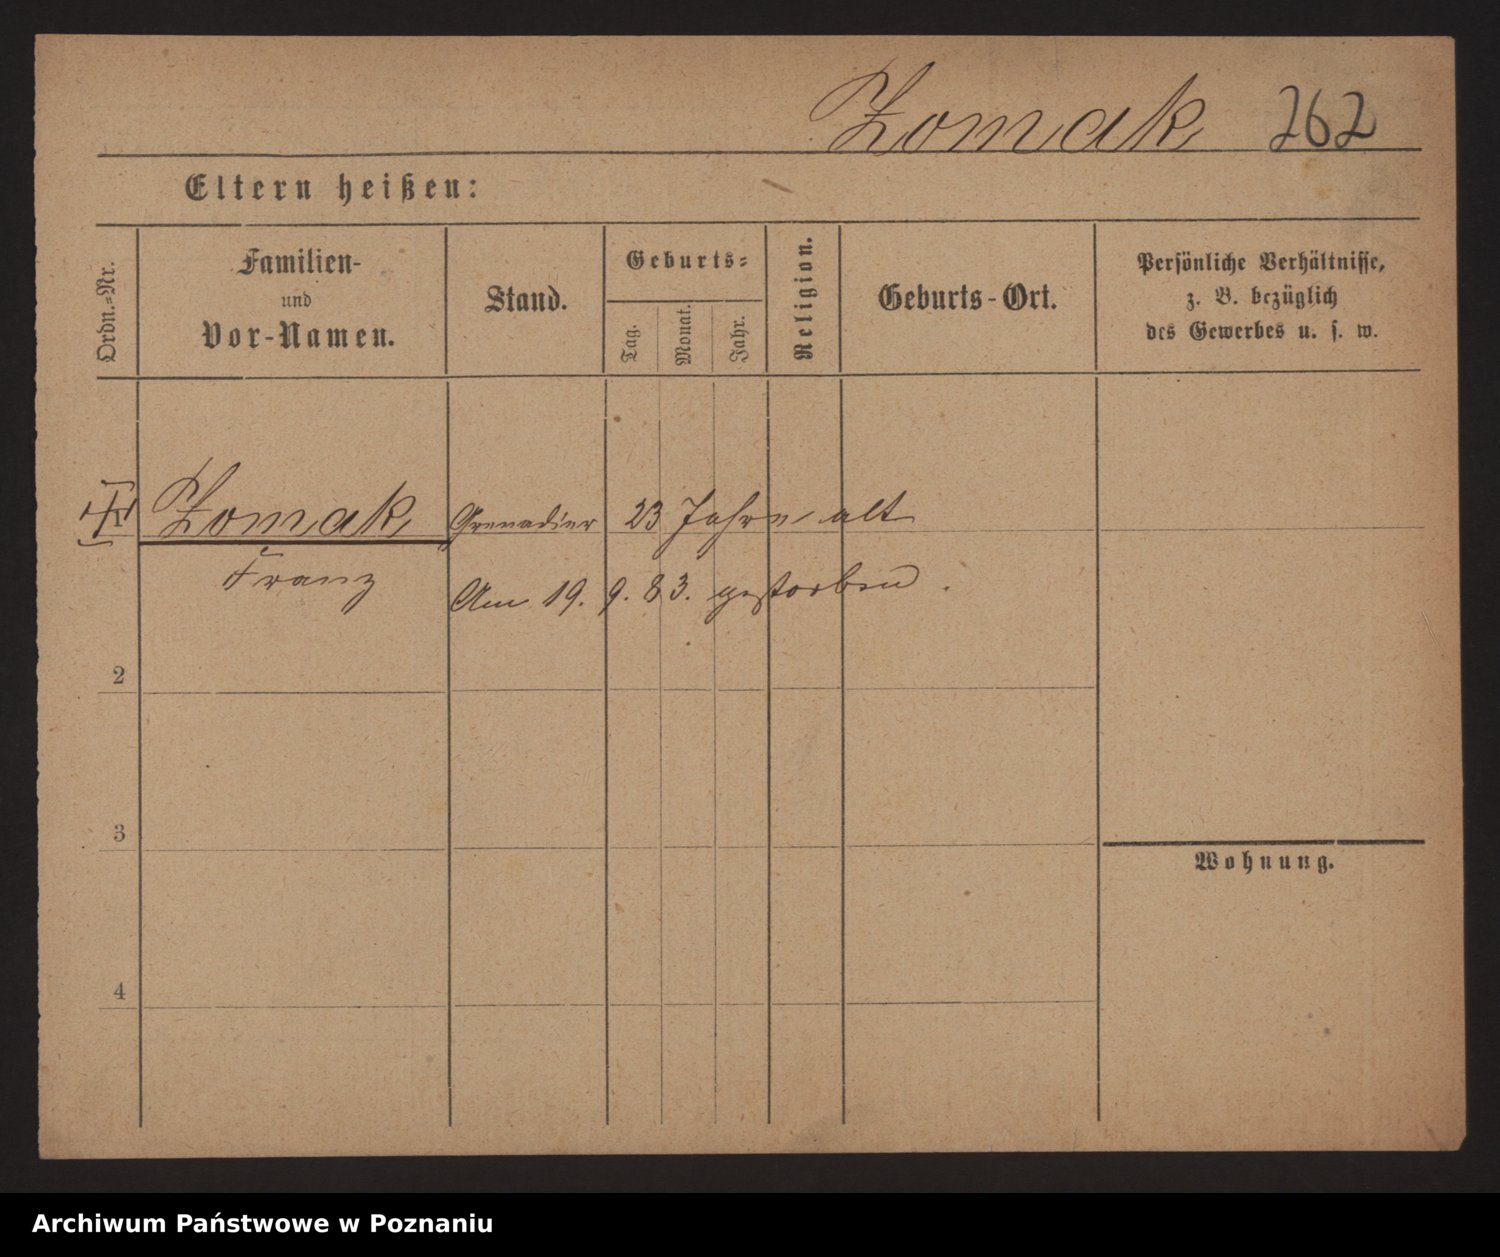 Zomak 262
Eltern heißen:
Ordn.-Nr.
Familien-
und
Vor-Namen.
Stand.
Geburts-
Tag.
Monat.
Jahr.
Religion.
Geburts-Ort.
Persönliche Verhältnisse,
z. B. bezüglich
des Gewerbes u. s. w.
1 Zomak Grenadier 23 Jahre alt
Franz Am 19. 9. 83. gestorben.
2
3
Wohnung.
4
Archiwum Państwowe w Poznaniu